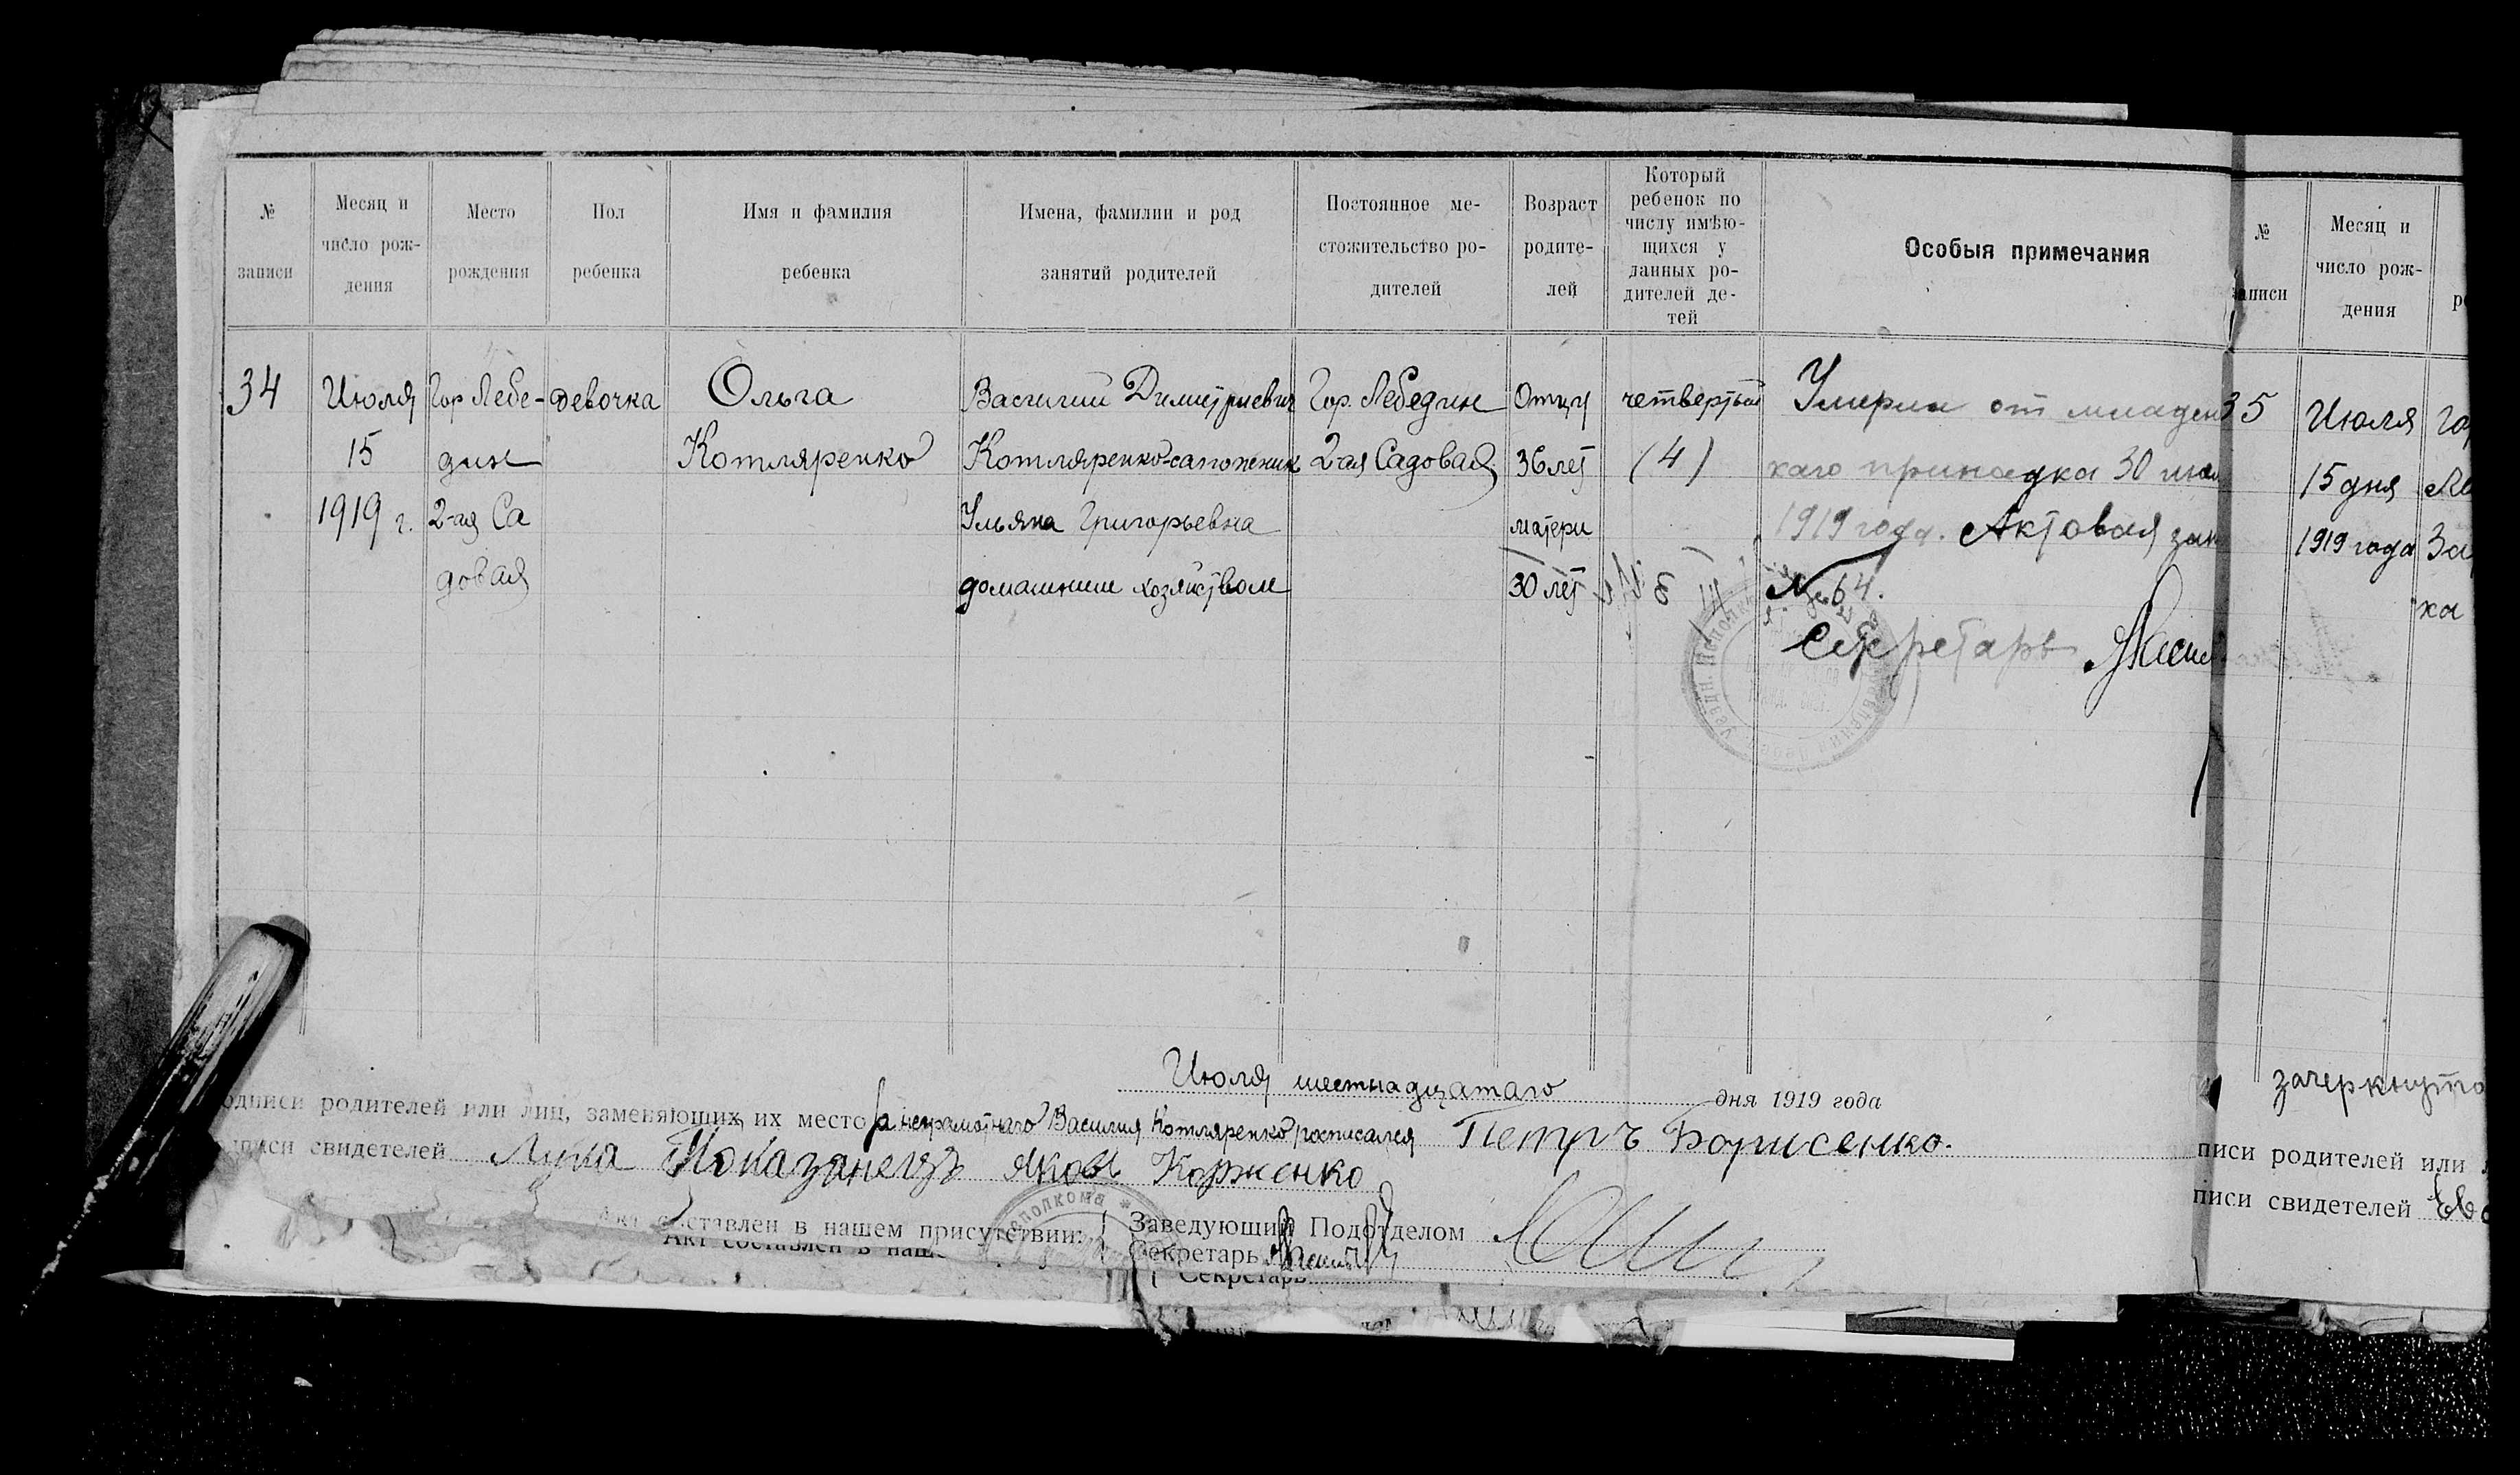 № записи
Месяц и число рож-дения
Место рождения
Пол ребенка
Имя и фамилия ребенка
Имена, фамилии и род занятий родителей
Постоянное ме-стожительство ро-дителей
Возраст родите-лей
Который ребенок по числу имѣю-щихся у данных ро-дителей де-тей
Особыя примечания
34
Июля
15
1919 г.
Гор Лебе-
дин
2-ая Са
довая
девочка
Ольга
Котляренко
Василий Димитриевич
Котляренко-сапожник
Ульяна Григорьевна
домашним хозяйством
Гор. Лебедин
2-ая Садовая
Отцу
36 лет
матери
30 лет
четвертый
(4)
Умерла от младен
каго припадка 30 июл
1919 года. Актовая зап
№ 64.
Секретарь
Июля шестнадцатаго дня 1919 года
одписи родителей или лиц, заменяющих их место За неграмотнаго Василия Котляренко росписался Петръ Борисенко.
писи свидетелей Лука Показанецъ Яков Корженко
Акт составлен в нашем присутствии:
Заведующий Подотделом
Секретарь
Акт составлен в наше
Секретарь
№
аписи
Месяц и
число рож-
дения
35
Июля
15 дня
1919 года
зачеркнуто
писи родителей или
писи свидетелей